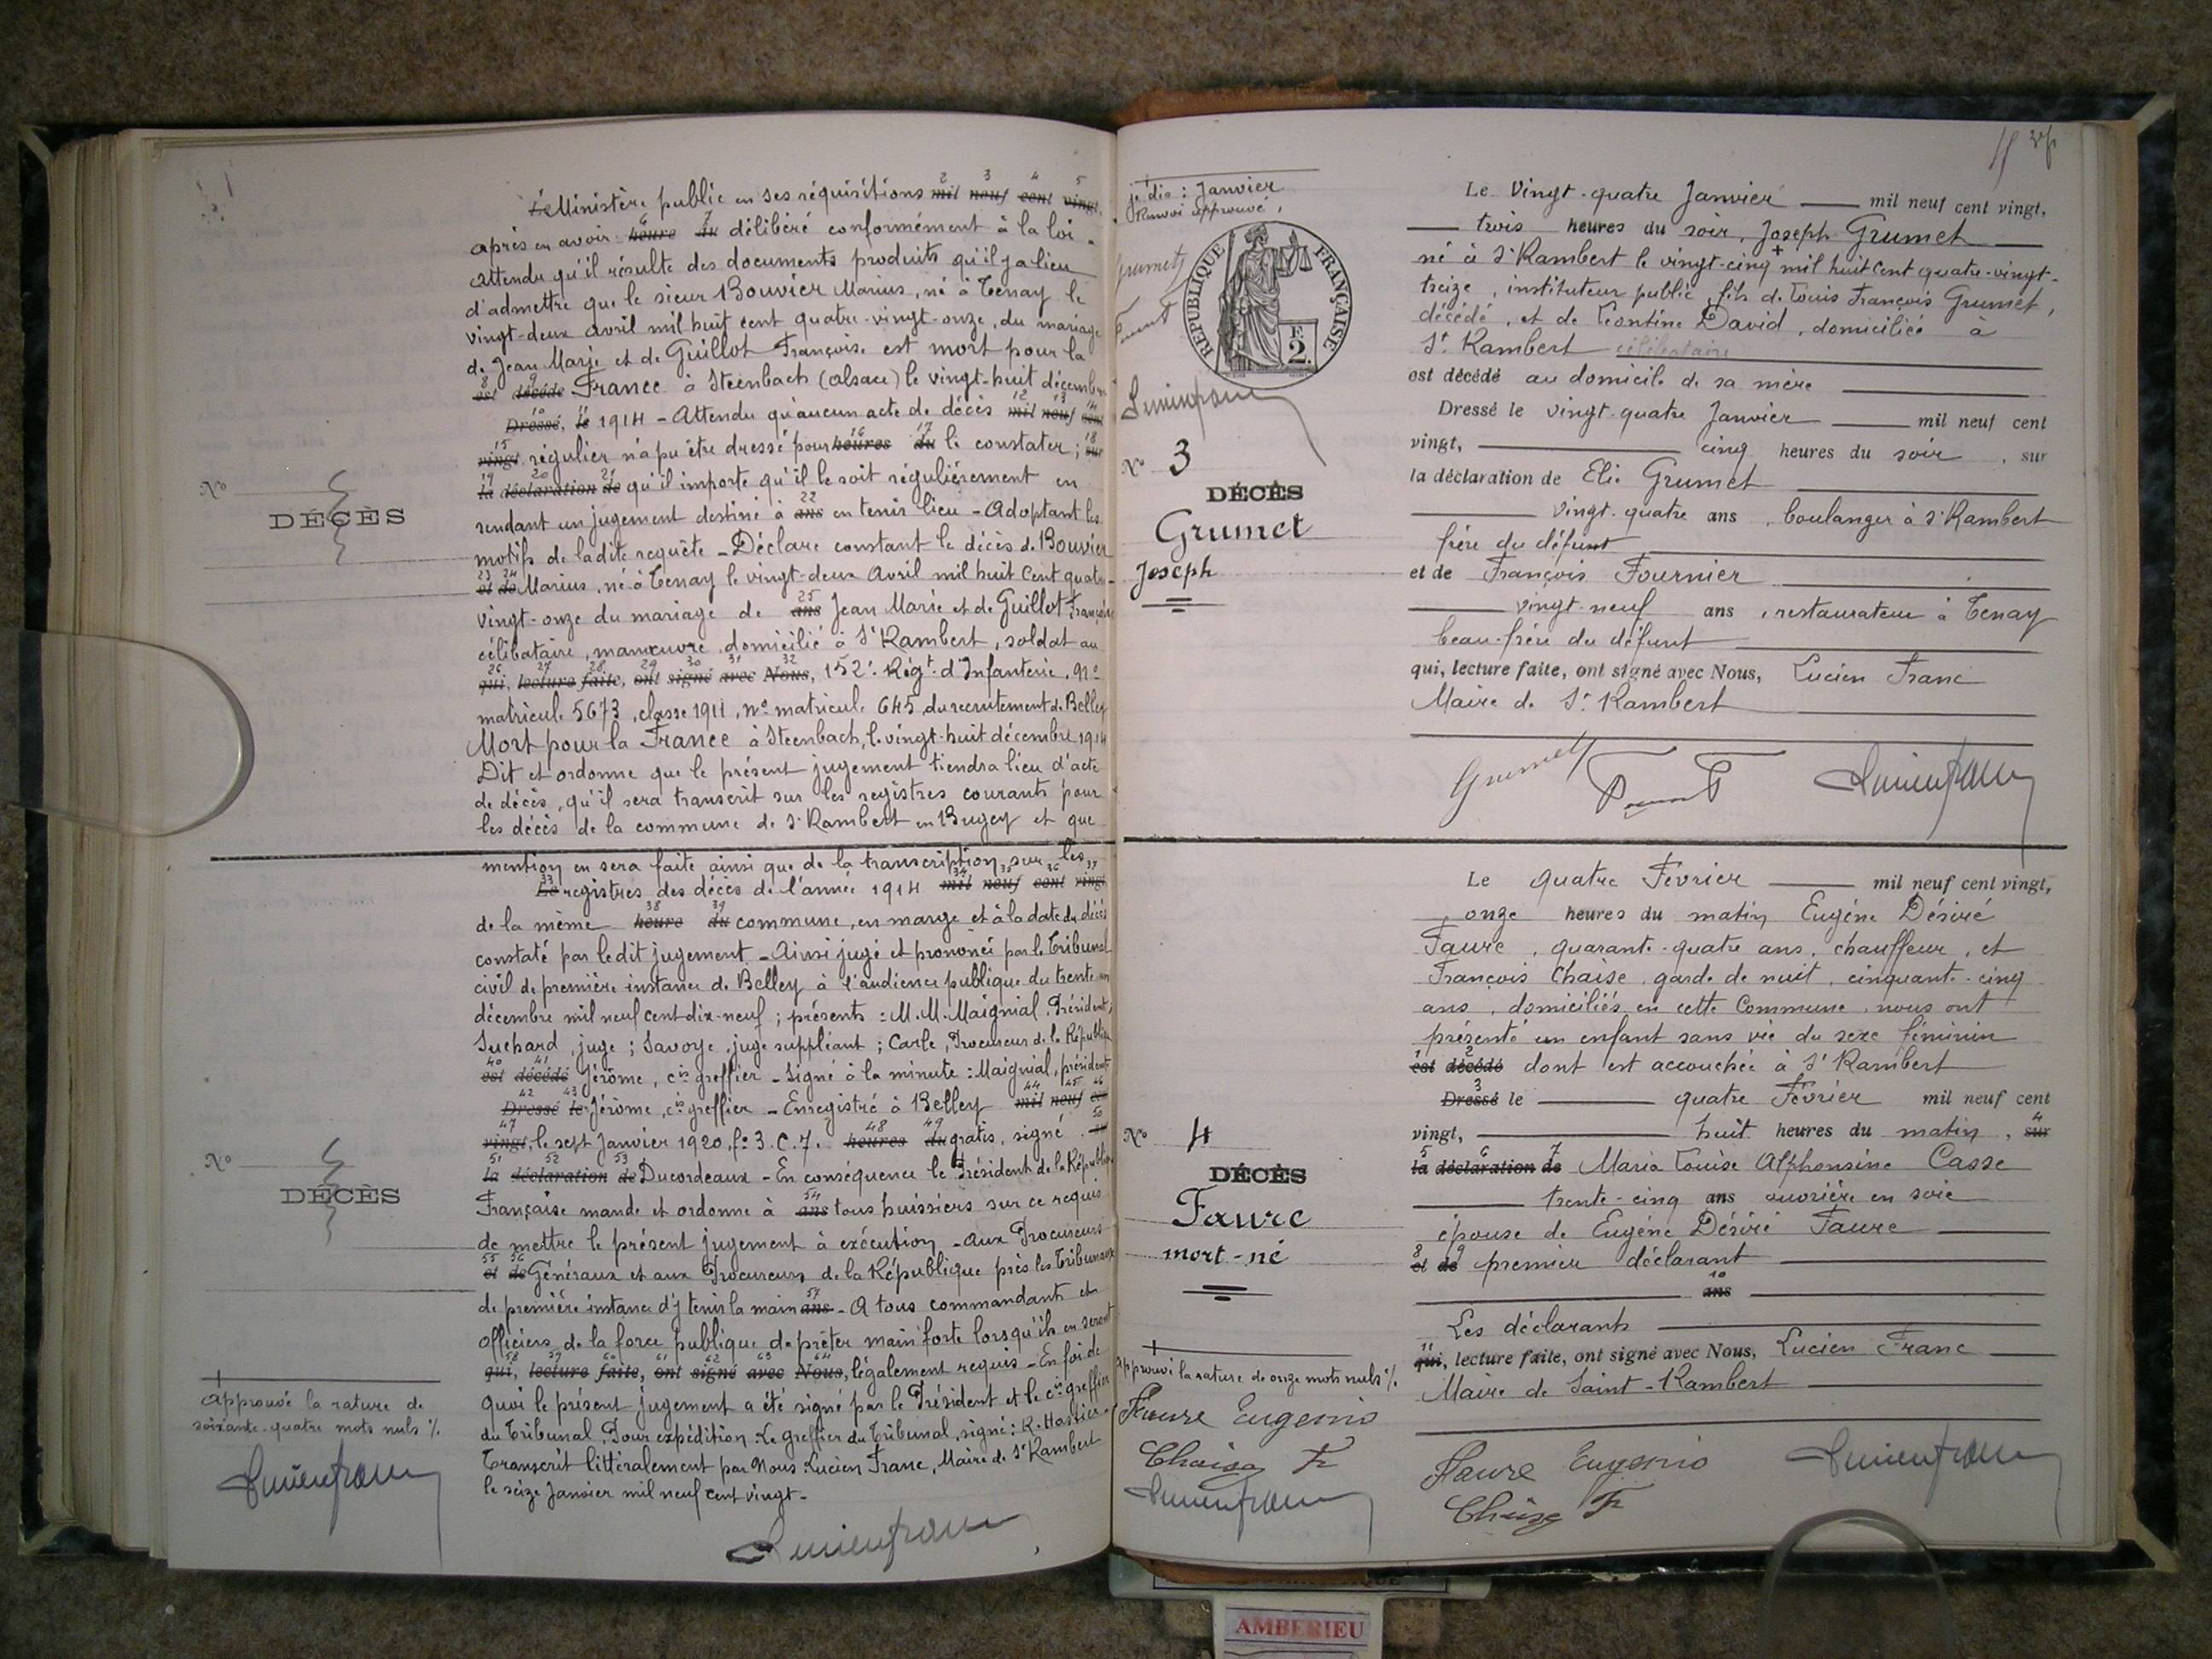 Le Ministère public en ses réquisitions mil neuf cent vingt,
après en avoir heure du délibéré conformément à la loi.
Attendu qu'il résulte des documents produits qu'il y a lieu
d'admettre que le sieur Bouvier Marius, né à Tenay le
vingt-deux avril mil huit cent quatre-vingt-onze, du mariage
de Jean Marie et de Guillot Françoise est mort pour la
est décédé France à Steinbach (Alsace) le vingt-huit décembre
Dressé, le 1914 - Attendu qu'aucun acte de décès mil neuf cent
vingt régulier n'a pu être dressé pour heures du le constater; sur
la déclaration de qu'il importe qu'il le soit régulièrement en
rendant un jugement destiné à ans en tenir lieu - Adoptant les
motifs de ladite requête - Déclare constant le décès de Bouvier
et de Marius, né à Tenay le vingt-deux Avril mil huit Cent quatre-
vingt-onze du mariage de ans Jean Marie et de Guillot Françoise
célibataire, manœuvre, domicilié à St Rambert, soldat au
qui, lecture faite, ont signé avec Nous, 152e Régt d'Infanterie, No
matricule 5673, classe 1911, No matricule 645 du recrutement de Belley
Mort pour la France à Steenbach, le vingt-huit décembre 1914
Dit et ordonne que le présent jugement tiendra lieu d'acte
de décès, qu'il sera transcrit sur les registres courants pour
les décès de la commune de St Rambert en Bugey et que
No
DÉCÈS
mention en sera faite ainsi que de la transcription, sur les
Le registres des décès de l'année 1914 mil neuf cent vingt
de la même heure du commune, en marge et à la date du décès
constaté par le dit jugement - Ainsi jugé et prononcé par le Tribunal
civil de première instance de Belley à l'audience publique du trente un
décembre mil neuf cent dix-neuf; présents : M.M. Maignial, Président;
Suchard, juge; Savoye, juge suppléant; Carle, Procureur de la République
est décédé Jérôme, cis greffier - Signé à la minute : Maignial, président
Dressé le Jérôme, cis greffier - Enregistré à Belley mil neuf cent
vingt, le sept Janvier 1920, fo 3. C. 7. heures du gratis, signé sur
la déclaration de Ducordeaux - En conséquence le Président de la République
Française mande et ordonne à ans tous huissiers sur ce requis
de mettre le présent jugement à exécution - aux Procureurs
et de Généraux et aux Procureurs de la République près les Tribunaux
de première instance d'y tenir la main ans - A tous commandants et
officiers de la force publique de prêter main forte lorsqu'ils en seront
qui, lecture faite, ont signé avec Nous, légalement requis - En foi de
quoi le présent jugement a été signé par le Président et le cis greffier
du Tribunal. Pour expédition. Le greffier du Tribunal, signé :
Transcrit littéralement par Nous Lucien Franc, Maire de St Rambert
le seize Janvier mil neuf cent vingt -
Lucien Franc
No
DÉCÈS
Approuvé la rature de
soixante-quatre mots nuls %
Lucien Franc
je dis : Janvier
Renvoi approuvé,
Grumet
Lucien Franc
RÉPUBLIQUE FRANÇAISE
F.
2.
No 3
DÉCÈS
Grumet
Joseph
Le Vingt-quatre Janvier mil neuf cent vingt,
trois heures du soir, Joseph Grumet
né à St Rambert le vingt-cinq + mil huit cent quatre-vingt-
treize, instituteur public, fils de Louis François Grumet,
décédé, et de Léontine David, domiciliée à
St Rambert célibataire
est décédé au domicile de sa mère
Dressé le vingt-quatre Janvier mil neuf cent
vingt, cinq heures du soir, sur
la déclaration de Elie Grumet
vingt-quatre ans, boulanger à St Rambert
frère du défunt
et de François Fournier
vingt-neuf ans, restaurateur à Tenay
beau-frère du défunt
qui, lecture faite, ont signé avec Nous, Lucien Franc
Maire de St Rambert
Grumet Lucien Franc
No 4
DÉCÈS
Faure
mort-né
Approuvé la rature de onze mots nuls %
Faure Eugenio
Chaise Fr
Lucien Franc
Le quatre Février mil neuf cent vingt,
onze heures du matin Eugène Désiré
Faure, quarante-quatre ans, chauffeur, et
François Chaise, garde de nuit, cinquante-cinq
ans, domiciliés en cette Commune, nous ont
présenté un enfant sans vie du sexe féminin
est décédé dont est accouchée à St Rambert
Dressé le quatre Février mil neuf cent
vingt, huit heures du matin, sur
la déclaration de Maria Louise Alphonsine Casse
trente-cinq ans ouvrière en soie
épouse de Eugène Désiré Faure
et de premier déclarant
ans
Les déclarants
qui, lecture faite, ont signé avec Nous, Lucien Franc
Maire de Saint-Rambert
Faure Eugenio Lucien Franc
Chaise Fr
AMBERIEU